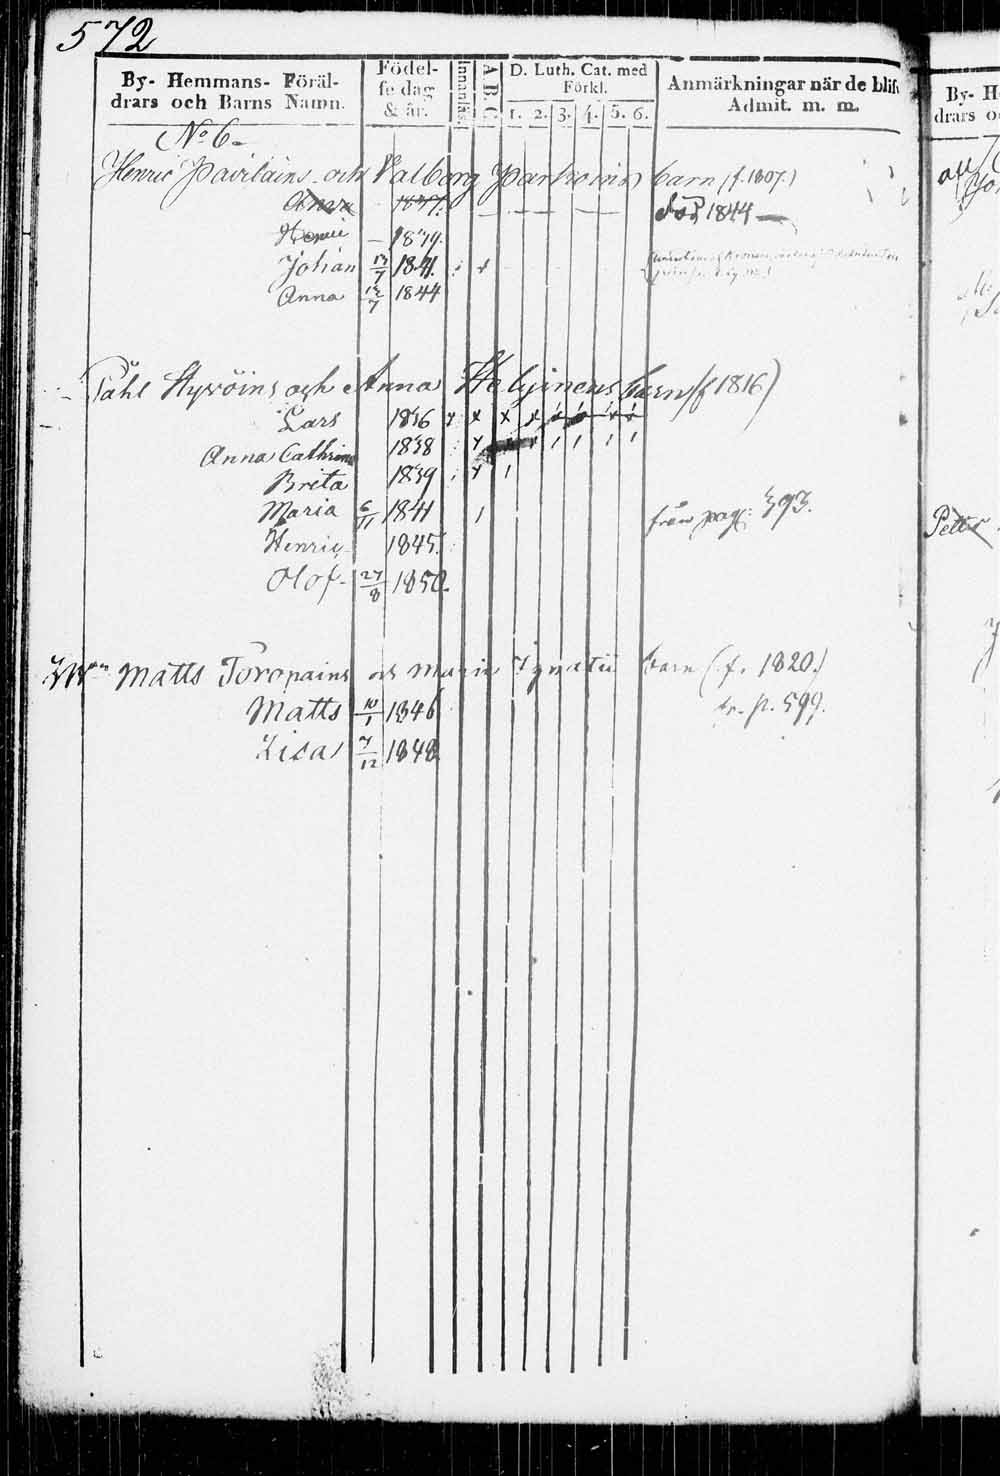 572
By- Hemmans- Föräl-
drars och Barns Namn.
Födel-
se dag
& år.
Innanläs.
A. B. C.
D. Luth. Cat. med
Förkl.
1. 2. 3. 4. 5. 6.
Anmärkningar när de blif
Admit. m. m.
No 6
Henric Pavilains och Valborg Parkoinos barn (f. 1807.)
Anna 1837. död 1844
Henric 1839.
Johan 13/7 1841.
Anna 13/7 1844
Påhl Hyvöins och Anna barn (f 1816)
Lars 1836
Anna Cathrina 1838
Brita 1839
Maria 6/11 1841 från pag: 393.
Henric 1845.
Olof 27/8 1850.
Matts Toropains och Maria Ignatii barn (f. 1820.)
Matts 10/1 1846 fr. p. 599.
Lisa 7/12 1848.
By- H
drars o
Petter